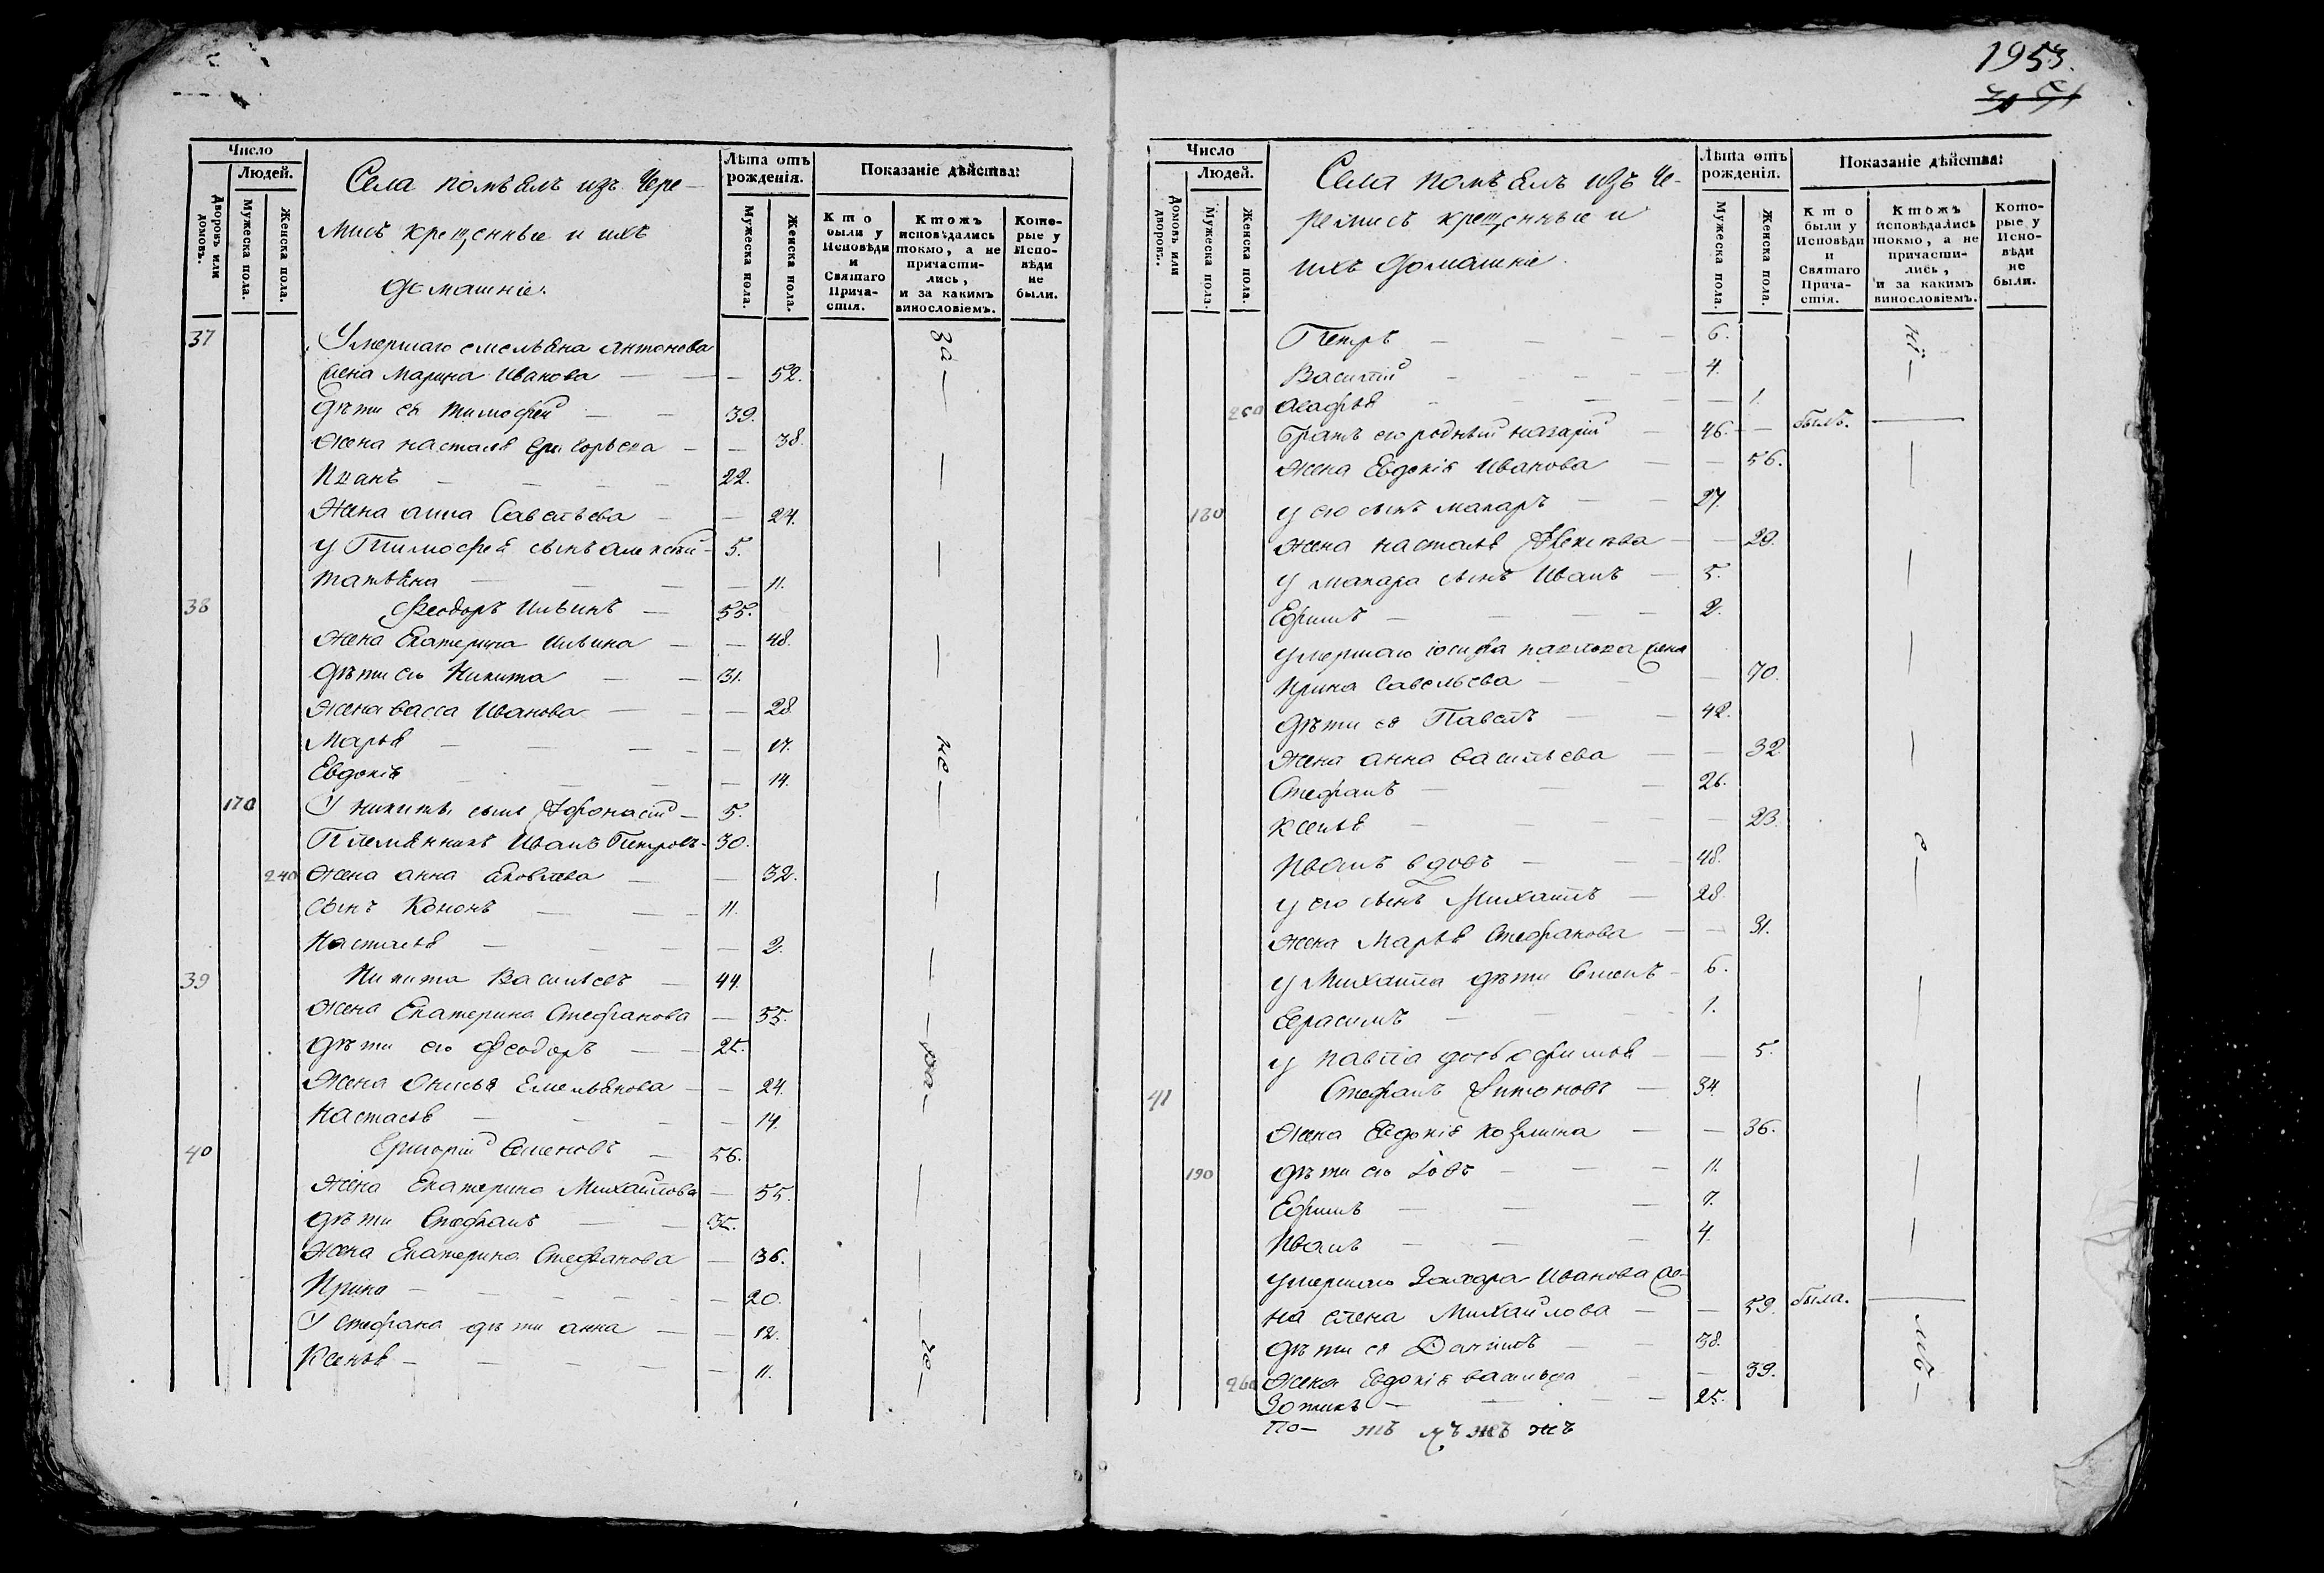 1953.
Число
Людей.
Дворовъ или домовъ.
Мужеска пола.
Женска пола.
Села помъялъ изъ Чере-
мисъ крещенные и ихъ
домашніе.
Лѣта отъ рожденія.
Мужеска пола.
Женска пола.
Показаніе дѣйства:
Кто были у Исповѣди и Святаго Причастія.
Ктожъ исповѣдались токмо, а не причастились, и за какимъ винословіемъ.
Которые у Исповѣди не были.
37 Умершаго емельяна антонова
жена Марина Иванова — — 52.
дѣти ея тимофей — — 39.
жена настасья Григорьева — — 38.
Иванъ — — — — 22.
Жена анна Савельева — — 24.
у Тимофея сынъ алексей — 5.
татьяна — — — — 11.
38 Феодоръ Ильинъ — 55.
жена Екатерина Ильина — — 48.
дѣти его Никита — — 31.
жена васса Иванова — — — 28.
Марья — — — — — 17.
Евдокія — — — — 14.
170 У никиты сынъ Афонасій — 5.
Племянникъ Иванъ Петровъ - 30.
240 жена анна яковлева — — 32.
сынъ Кононъ — — — 11.
Настасья — — — — 2.
39 Никита Васильевъ — 44.
жена Екатерина Стефанова — 55.
дѣти его Феодоръ — — 25.
Жена Онисья Емельянова — — 24.
Настасья — — — — 14.
40 Григорій Семеновъ — 56.
жена Екатерина Михайлова — 55.
дѣти Стефанъ — — 35.
Жена Екатерина Стефанова — 36.
Ирина — — — — — 20.
У стефана дѣти анна — — 12.
Ксенья — — — — — 11.
за —
не —
ра —
че —
Число
Людей.
Домовъ или дворовъ.
Мужеска пола.
Женска пола.
Села помъялъ изъ Че-
ремисъ крещенные и
ихъ домашніе.
Лѣта отъ рожденія.
Мужеска пола.
Женска пола.
Показаніе дѣйства:
Кто были у Исповѣди и Святаго Причастія.
Ктожъ исповѣдались токмо, а не причастились, и за какимъ винословіемъ.
Которые у Исповѣди не были.
Петръ — — — — 6.
Василій — — — — 4.
250 Агафья — — — — — 1.
братъ его родный назарій — 46. — былъ. —
жена Евдокія Иванова — — 56.
180 у его сынъ макаръ — — 27.
жена настасья — — 29.
у макара сынъ Иванъ — 5.
Ефимъ — — — — 2.
умершаго іосифа павлова жена
Ирина Савельева — — — 70.
дѣти ея Павелъ — — 42.
жена анна васильева — — 32.
Стефанъ — — — 26.
Ксенья — — — — — 23.
Иванъ вдовъ — — — 48.
у его сынъ Михаилъ — 28.
жена Марья Стефанова — — 31.
у Михаила дѣти Семенъ — 6.
Герасимъ — — — 1.
у павла дочь офимья — — 5.
41 Стефанъ Антоновъ — 34.
жена Евдокія козмина — — 36.
190 дѣти его Іовъ — — — 11.
Ефимъ — — — 7.
Иванъ — — — 4.
умершаго Захара Иванова же-
на елена Михайлова — — 59. была. —
дѣти ея Даніилъ — — 38.
260 жена Евдокія васильева — — 39.
Зотикъ — — — — 25.
ні —
е —
мъ —
По — мъ мъ жъ жъ